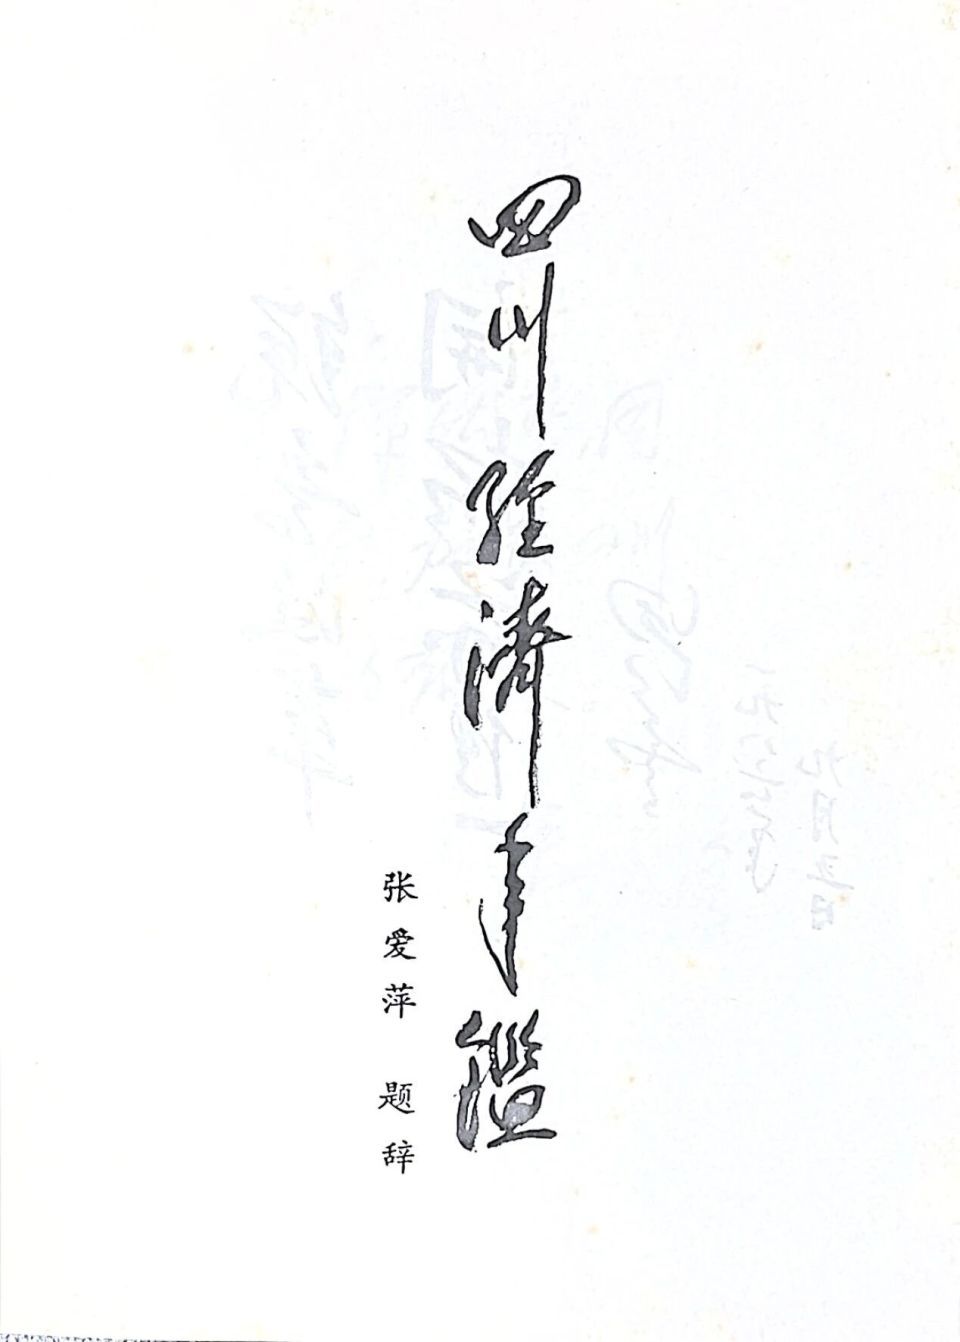 四川经濟年鑑
张爱萍 题辞